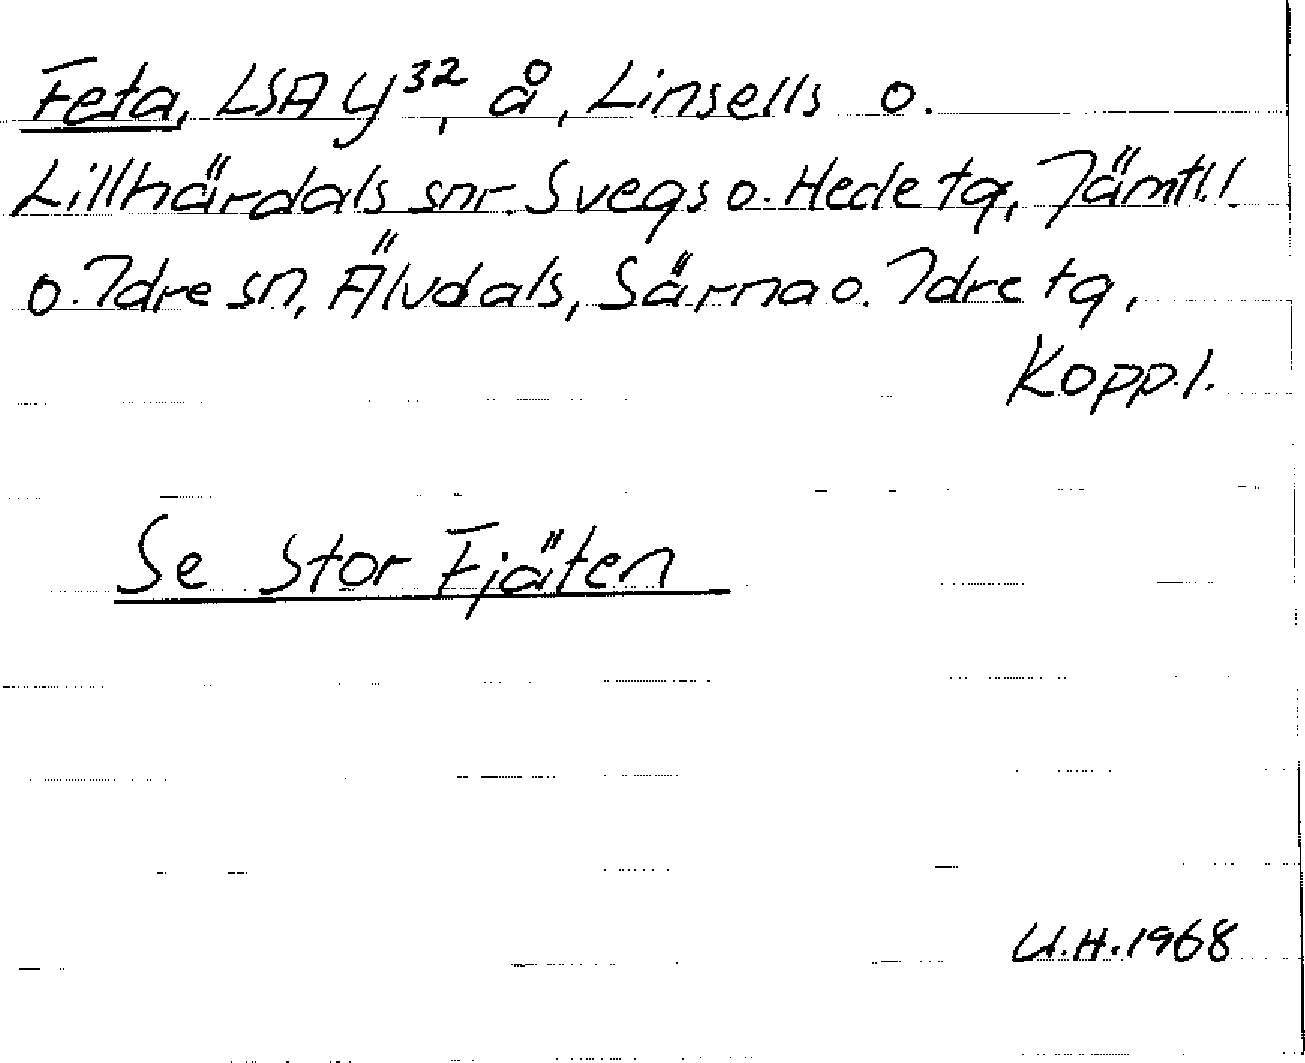 Feta, LSA Y³², å, Linsells o.
Lillhärdals snr. Svegs o. Hede tg, Jämtl.l.
o. Idre sn, Älvdals, Särna o. Idre tg,
Kopp.l.
Se Stor Fjäten
U.H. 1968